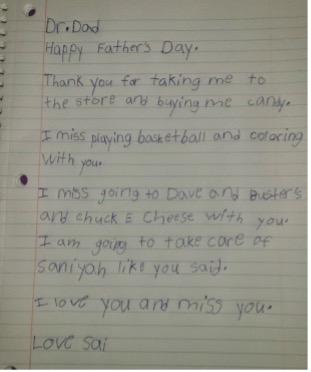 Dr. Dad
Happy Father's Day.
Thank you for taking me to
the store and buying me candy.
I miss playing basketball and coloring
with you.
I miss going to Dave and Busters
and chuck E Cheese with you.
I am going to take care of
Saniyah like you said.
I love you and miss you.
Love Sai